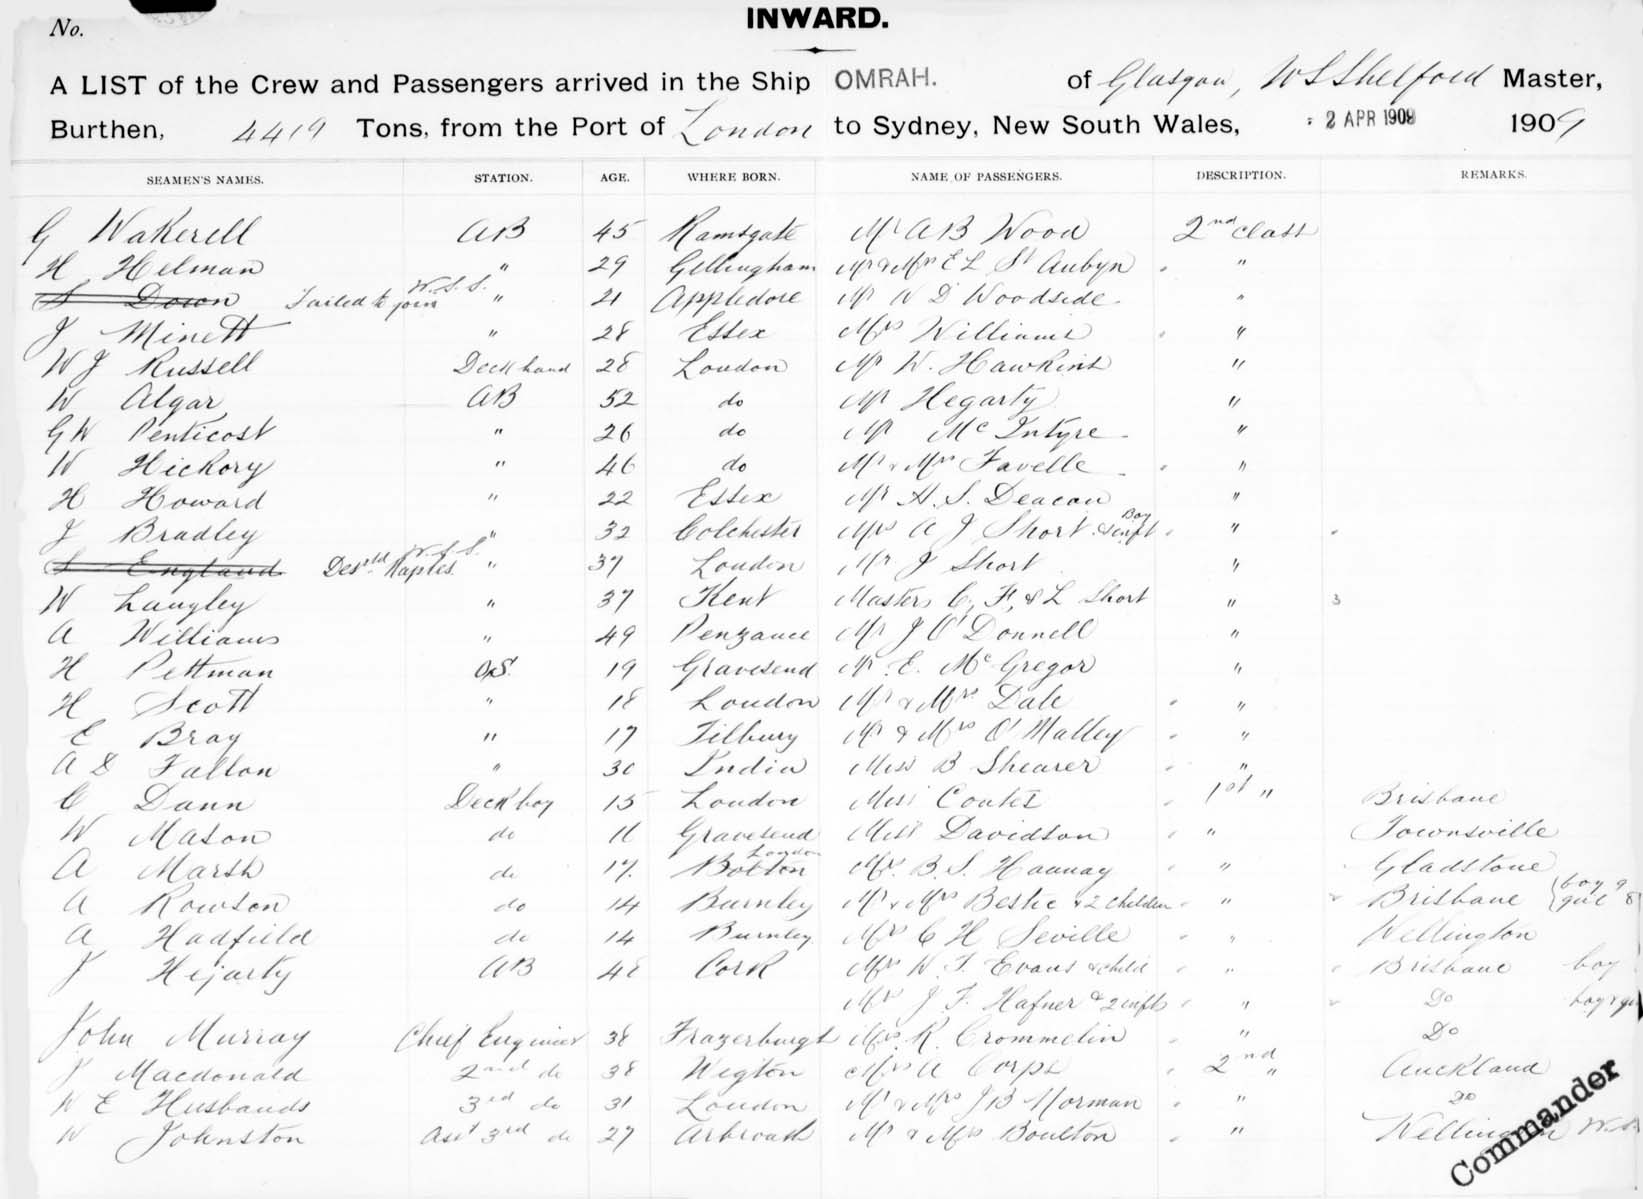 No.
INWARD.
A LIST of the Crew and Passengers arrived in the Ship OMRAH. of Glasgow, W S Shelford Master,
Burthen, 4419 Tons, from the Port of London to Sydney, New South Wales, 2 APR 1909 1909
SEAMEN'S NAMES. STATION. AGE. WHERE BORN. NAME OF PASSENGERS. DESCRIPTION. REMARKS.
G Wakerell AB 45 Ramsgate Mr A B Wood 2nd Class
H Helman " 29 Gillingham Mr & Mrs E L St Aubyn "
S Down Failed to join W.S.S. " 21 Appledore Mr W D Woodside "
J Minett " 28 Essex Mrs Williams "
W J Russell Deck hand 28 London Mr W. Hawkins "
W Algar AB 52 do Mr Hegarty "
G W Penticost " 26 do Mr McIntyre "
W Hickory " 46 do Mr & Mrs Favelle "
H Howard " 22 Essex Mr H. S. Deacon "
J Bradley " 32 Colchester Mrs A J Short & inft Boy "
S England Desrtd Naples W.S.S. " 37 London Mr J Short "
W Langley " 37 Kent Masters C, F, & L Short " 3
A Williams " 49 Penzance Mr J O'Donnell "
H Pettman OS. 19 Gravesend Mr E. McGregor "
H Scott " 18 London Mr & Mrs Dale "
E Bray " 17 Tilbury Mr & Mrs O'Malley "
A D Fallon " 30 India Miss B Shearer "
C Dann Deck boy 15 London Miss Coates 1st " Brisbane
W Mason do 16 Gravesend Miss Davidson " Townsville
A Marsh do 17. Bolton London Mr. B. S. Hannay " Gladstone
A Rowson do 14 Burnley Mr & Mrs Bestic & 2 children " Brisbane boy 9 girl 8
A Hadfield do 14 Burnley Mrs C H Seville " Wellington
J Hejarty AB 48 Cork Mrs W. F. Evans & child " Brisbane boy
Mrs J F. Hafner & 2 infts " Do boy &
John Murray Chief Engineer 38 Frazerburgh Mrs. R. Crommelin " Do
J Macdonald 2nd do 38 Wigton Mrs A Corps 2nd " Auckland
W E Husbands 3rd do 31 London Mr & Mrs J B Norman " Do
W Johnston Asst 3rd do 27 Arbroath Mr & Mrs Boulton " Wellington
Commander